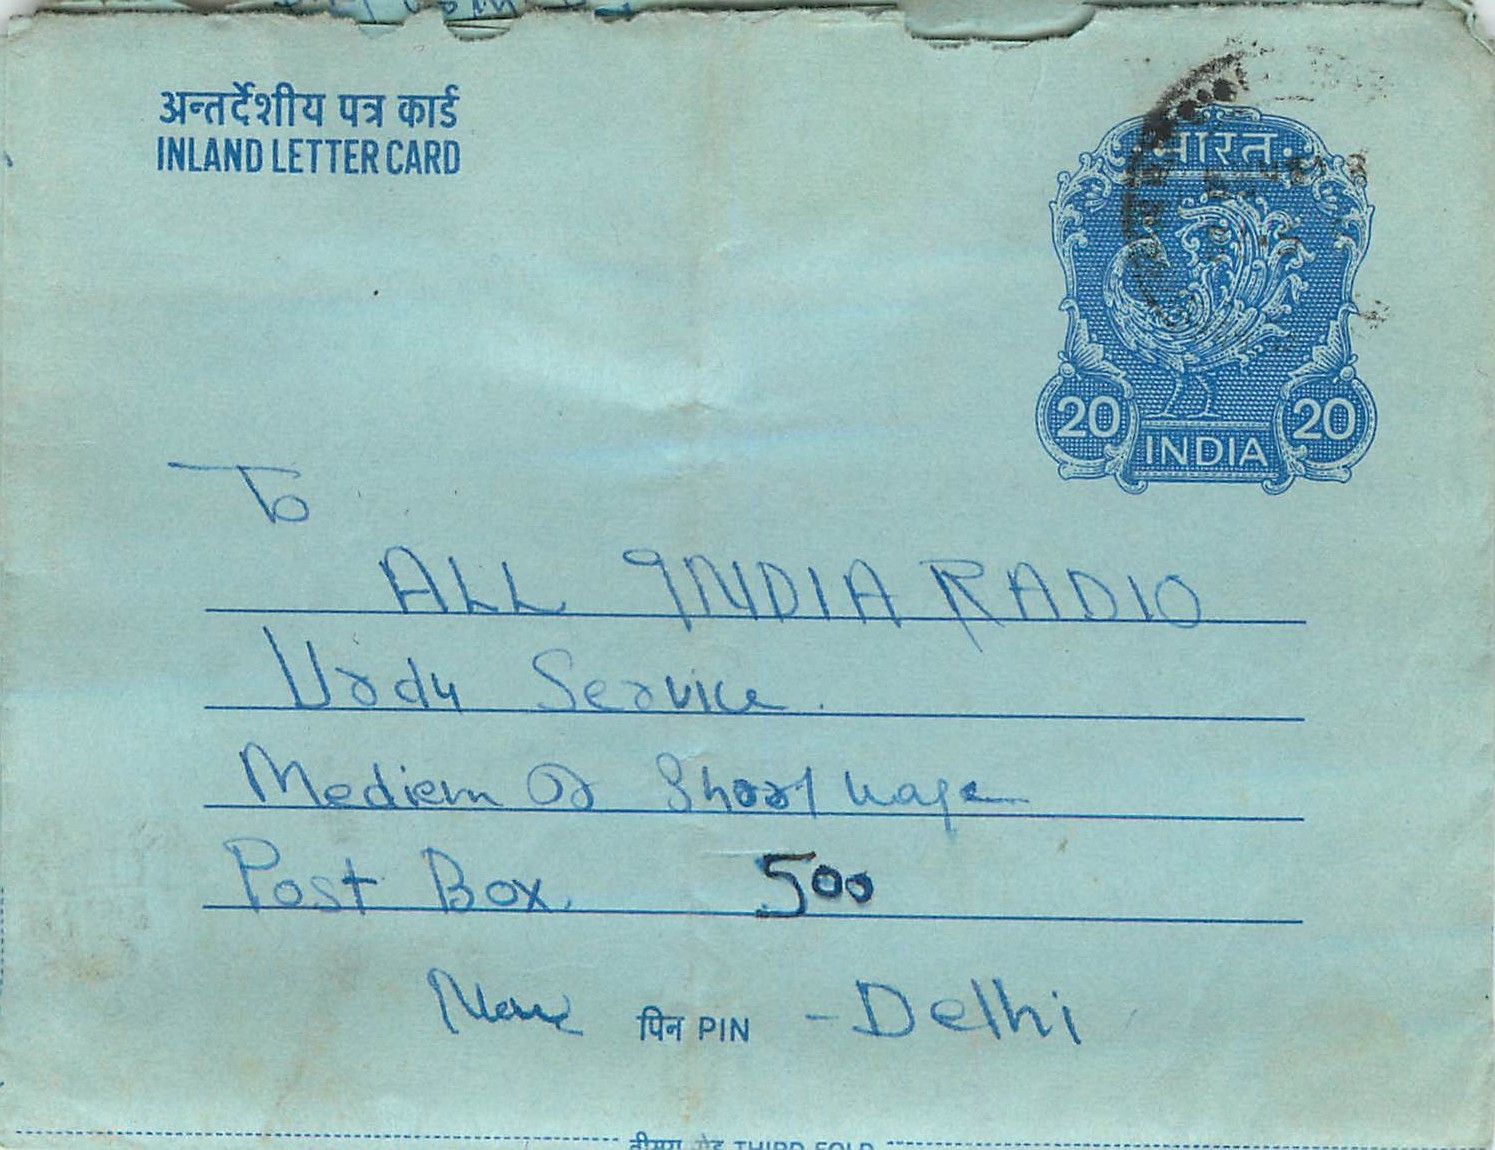 अन्तर्देशीय पत्र कार्ड
INLAND LETTER CARD
भारत
20 20
INDIA
To
ALL INDIA RADIO
Urdu Service.
Mediem or Short wave
Post Box. 500
New पिन PIN - Delhi
तीसरा मोड़ THIRD FOLD